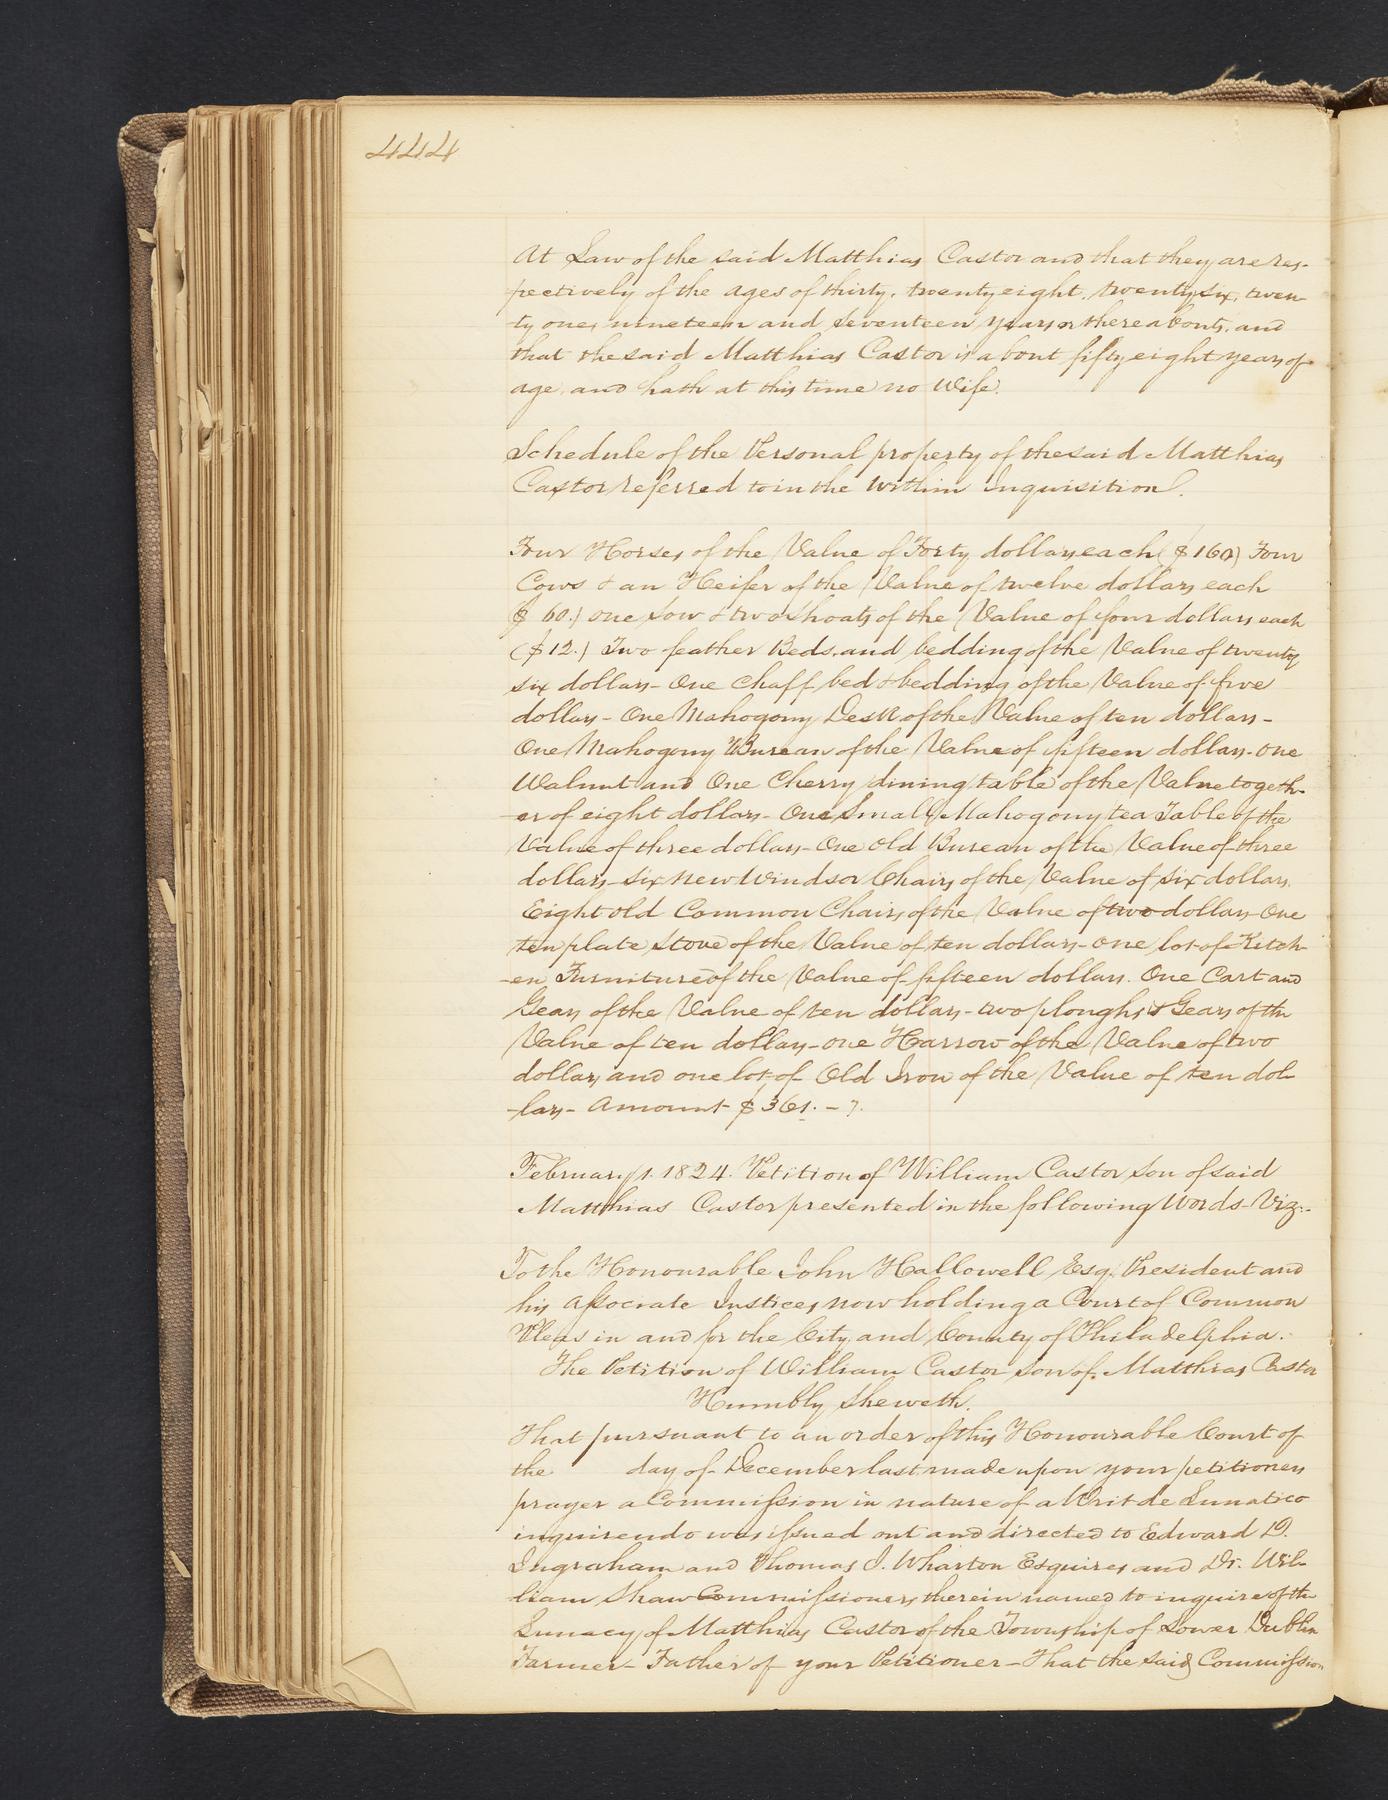 444
At Law of the said Matthias Castor and that they are res-
pectively of the ages of thirty, twenty eight, twenty six, twen
ty one, nineteen and seventeen years or thereabouts, and
that the said Matthias Castor is about fifty eight years of
age, and hath at this time no Wife.
Schedule of the Personal property of the said Matthias
Castor referred to in the within Inquisition.
Four Horses of the Value of Forty dollars each ($160) Four
Cows & an Heifer of the Value of twelve dollars each
$ 60.) one Sow & two Shoats of the Value of four dollars each
($12.) Two feather Beds and bedding of the Value of twenty
six dollars - One Chaff bed & bedding of the Value of five
dollars - One Mahogony Desk of the Value of ten dollars -
One Mahogony Bureau of the Value of fifteen dollars - One
Walnut and One Cherry dining table of the Value togeth-
er of eight dollars - One Small Mahogony tea Table of the
Value of three dollars - One old Bureau of the Value of three
dollars - six new Windsor Chairs of the Value of six dollars.
Eight old Common Chairs of the Value of two dollars - One
ten plate Stove of the Value of ten dollars - one lot of Kitch-
-en Furniture of the Value of fifteen dollars. One Cart and
Gears of the Value of ten dollars - two ploughs & Gears of the
Value of ten dollars - one Harrow of the Value of two
dollars and one lot of Old Iron of the Value of ten dol-
-lars - Amount $361. -
February 1. 1824. Petition of William Castor Son of said
Matthias Castor presented in the following Words - Viz:-
To the Honourable John Hallowell Esq. President and
his Associate Justices now holding a Court of Common
Pleas in and for the City and County of Philadelphia.
The Petition of William Castor Son of Matthias Castor
Humbly Sheweth.
That pursuant to an order of this Honourable Court of
the day of December last made upon your petitioners
prayer a Commission in nature of a Writ de Lunatico
inquirendo was issued out and directed to Edward D.
Ingraham and Thomas I. Wharton Esquires and Dr. Wil-
liam Shaw Commissioners therein named to inquire of the
Lunacy of Matthias Castor of the Township of Lower Dublin
Farmer - Father of your Petitioner - That the said Commission